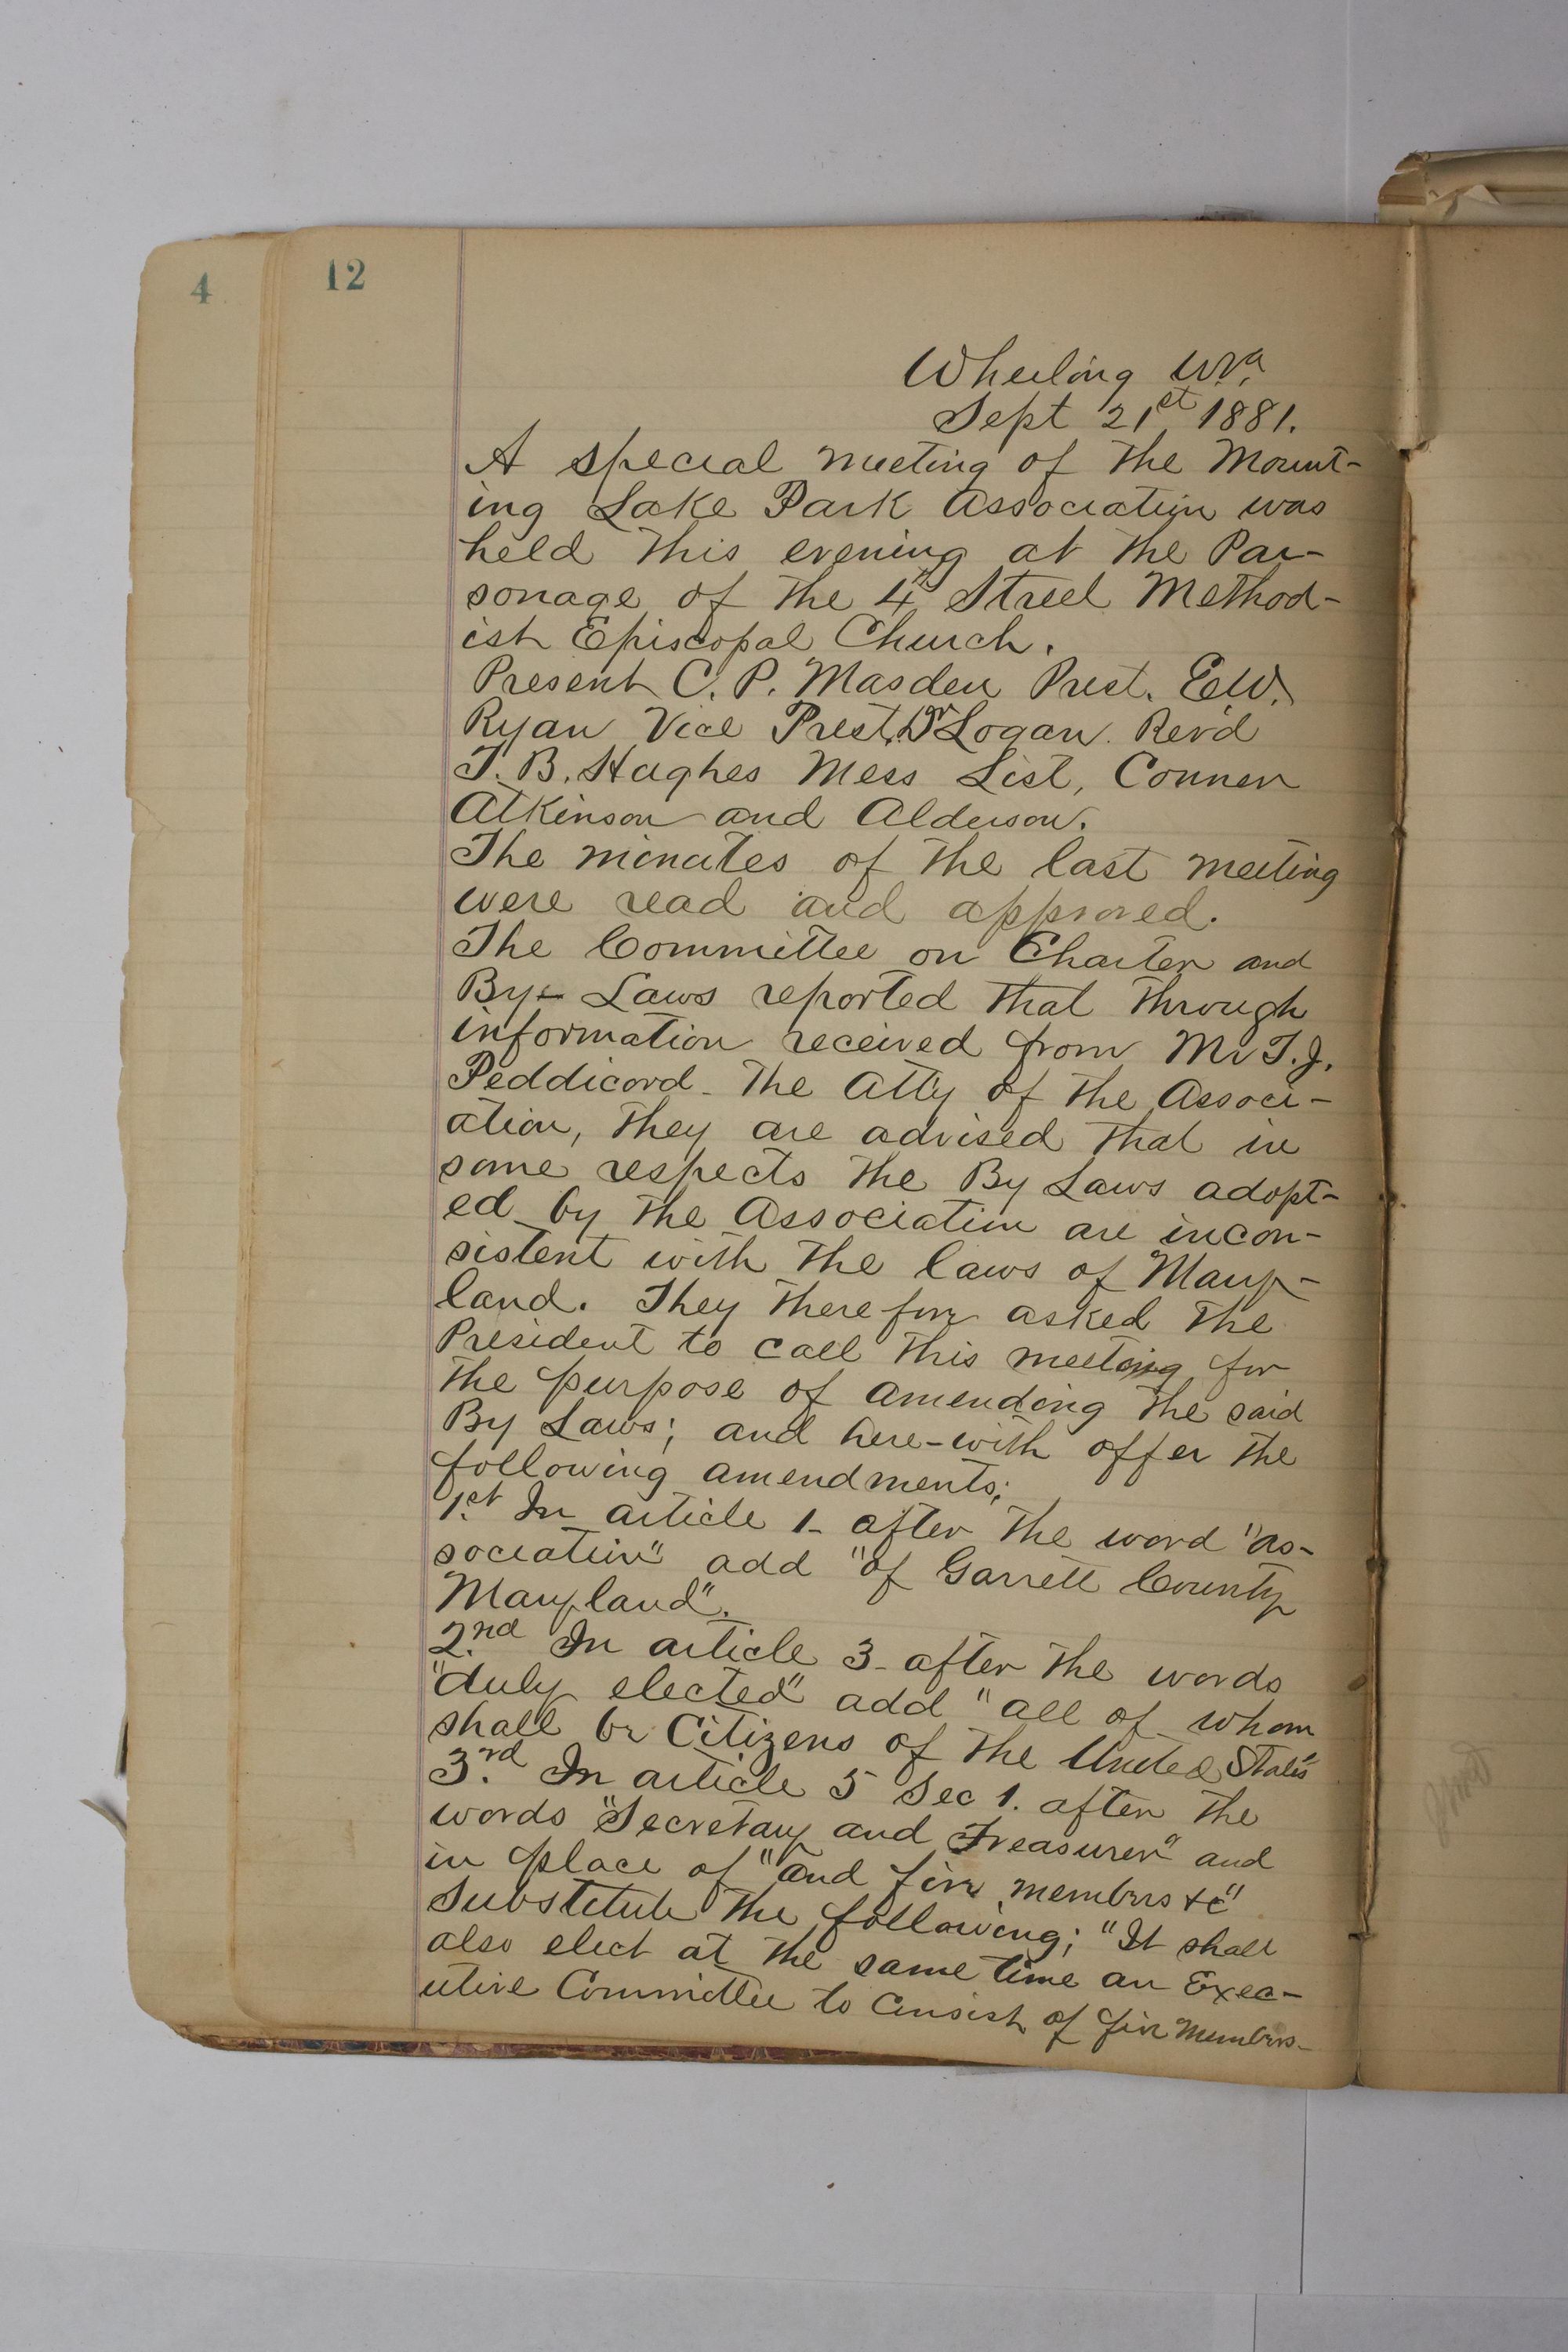 4
12
Wheeling W.Va.
Sept 21st 1881.
A special meeting of the Mount-
ing Lake Park Association was
held this evening at the Par-
sonage of the 4th Street Method-
ist Episcopal Church.
Present C. P. Masden Prest. E.W.
Ryan Vice Prest. Dr Logan. Rev'd
T. B. Hughes Mess List, Conner
Atkinson and Alderson.
The minutes of the last meeting
were read and approved.
The Committee on Charter and
By- Laws reported that through
information received from Mr T.J.
Peddicord - the Atty of the Associ-
ation, they are advised that in
some respects the By Laws adopt-
ed by the Association are incon-
sistent with the laws of Mary-
land. They therefore asked the
President to call this meeting for
the purpose of amending the said
By Laws; and here-with offer the
following amendments;
1st. In article 1- after the word "as-
sociation" add "of Garrett County
Maryland".
2nd. In article 3- after the words
"duly elected" add "all of whom
shall be Citizens of the United States
3rd. In article 5 Sec 1. after the
words "Secretary and Treasurer" and
in place of "and five members &c"
Substitute the following; "It shall
also elect at the same time an Exec-
utive Committee to Consist of five members-